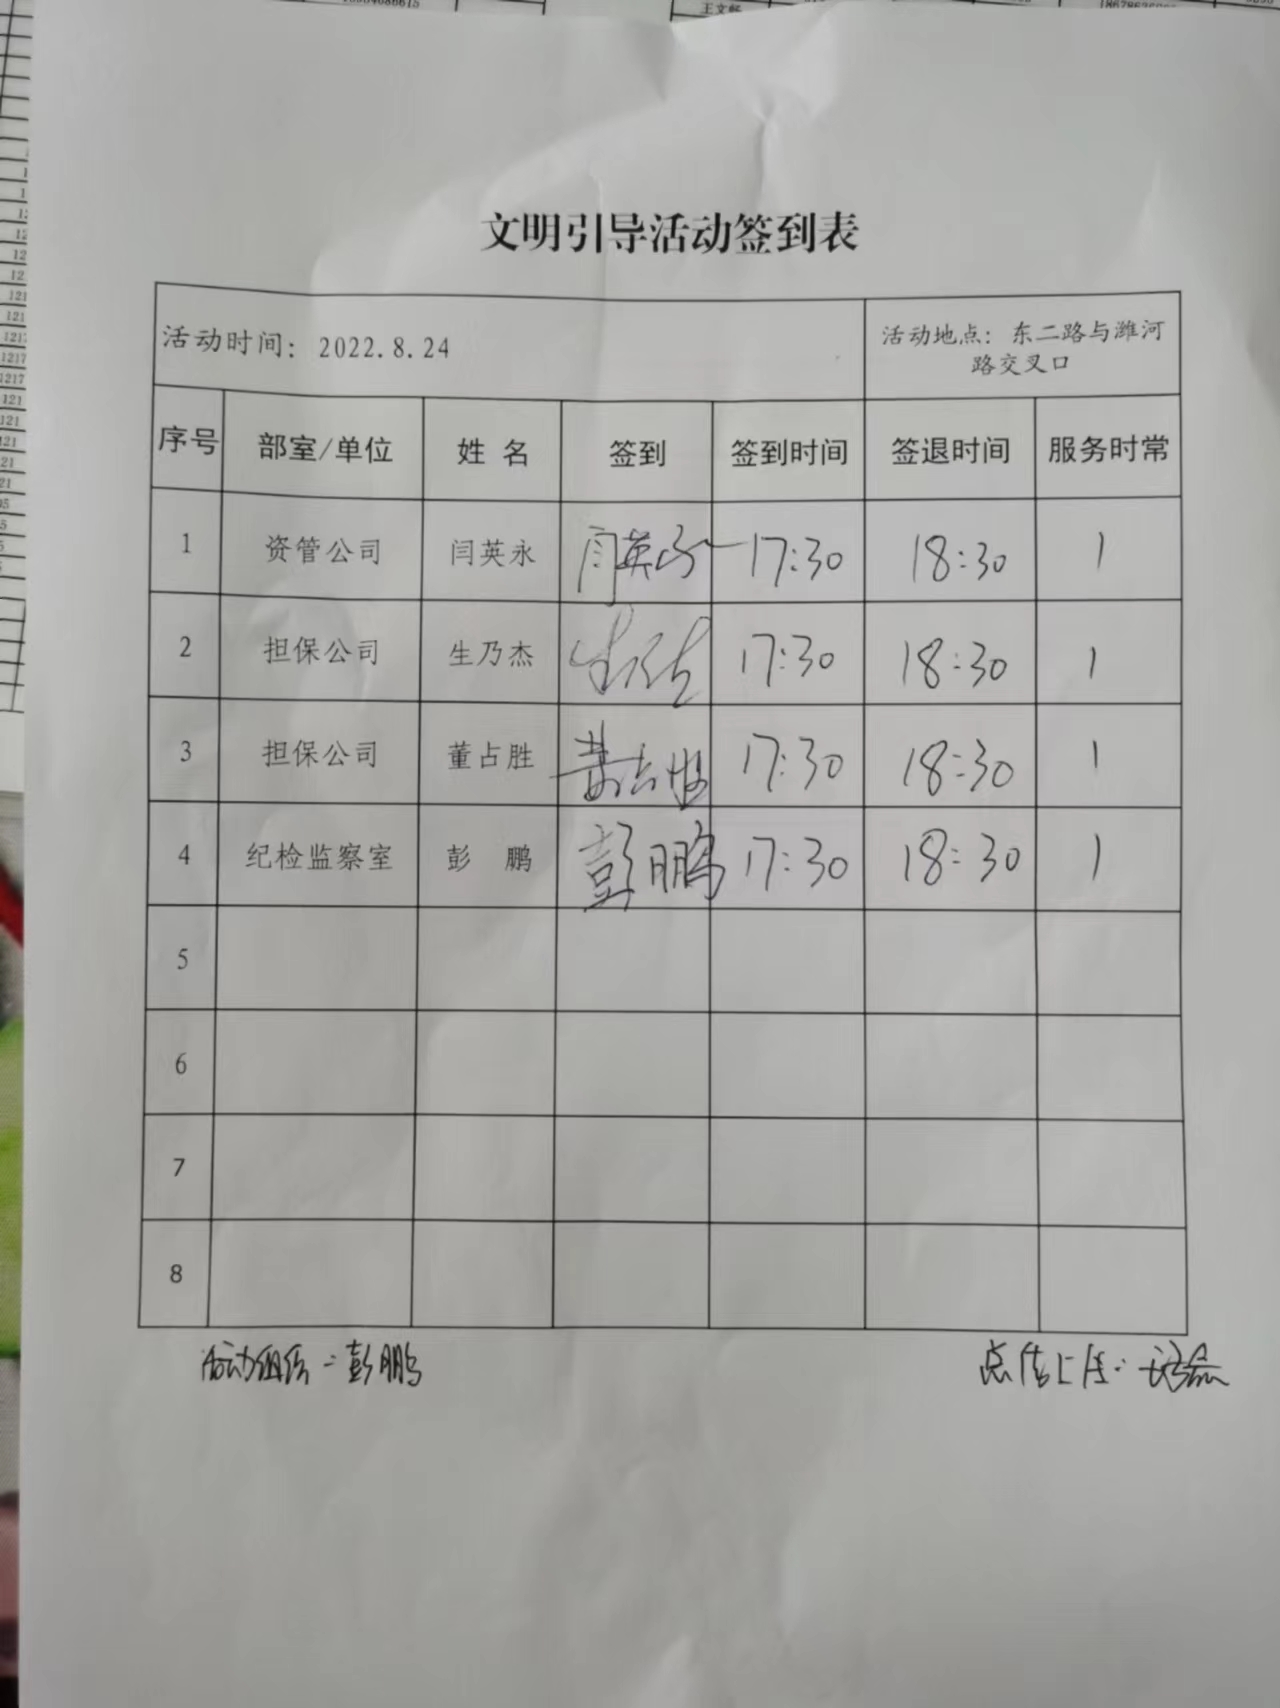 王文
文明引导活动签到表
活动时间：2022.8.24
活动地点：东二路与潍河
路交叉口
序号 部室/单位 姓 名 签到 签到时间 签退时间 服务时常
1 资管公司 闫英永 闫英永 17:30 18:30 1
2 担保公司 生乃杰 17:30 18:30 1
3 担保公司 董占胜 董占胜 17:30 18:30 1
4 纪检监察室 彭 鹏 彭鹏 17:30 18:30 1
5
6
7
8
活动组织：彭鹏